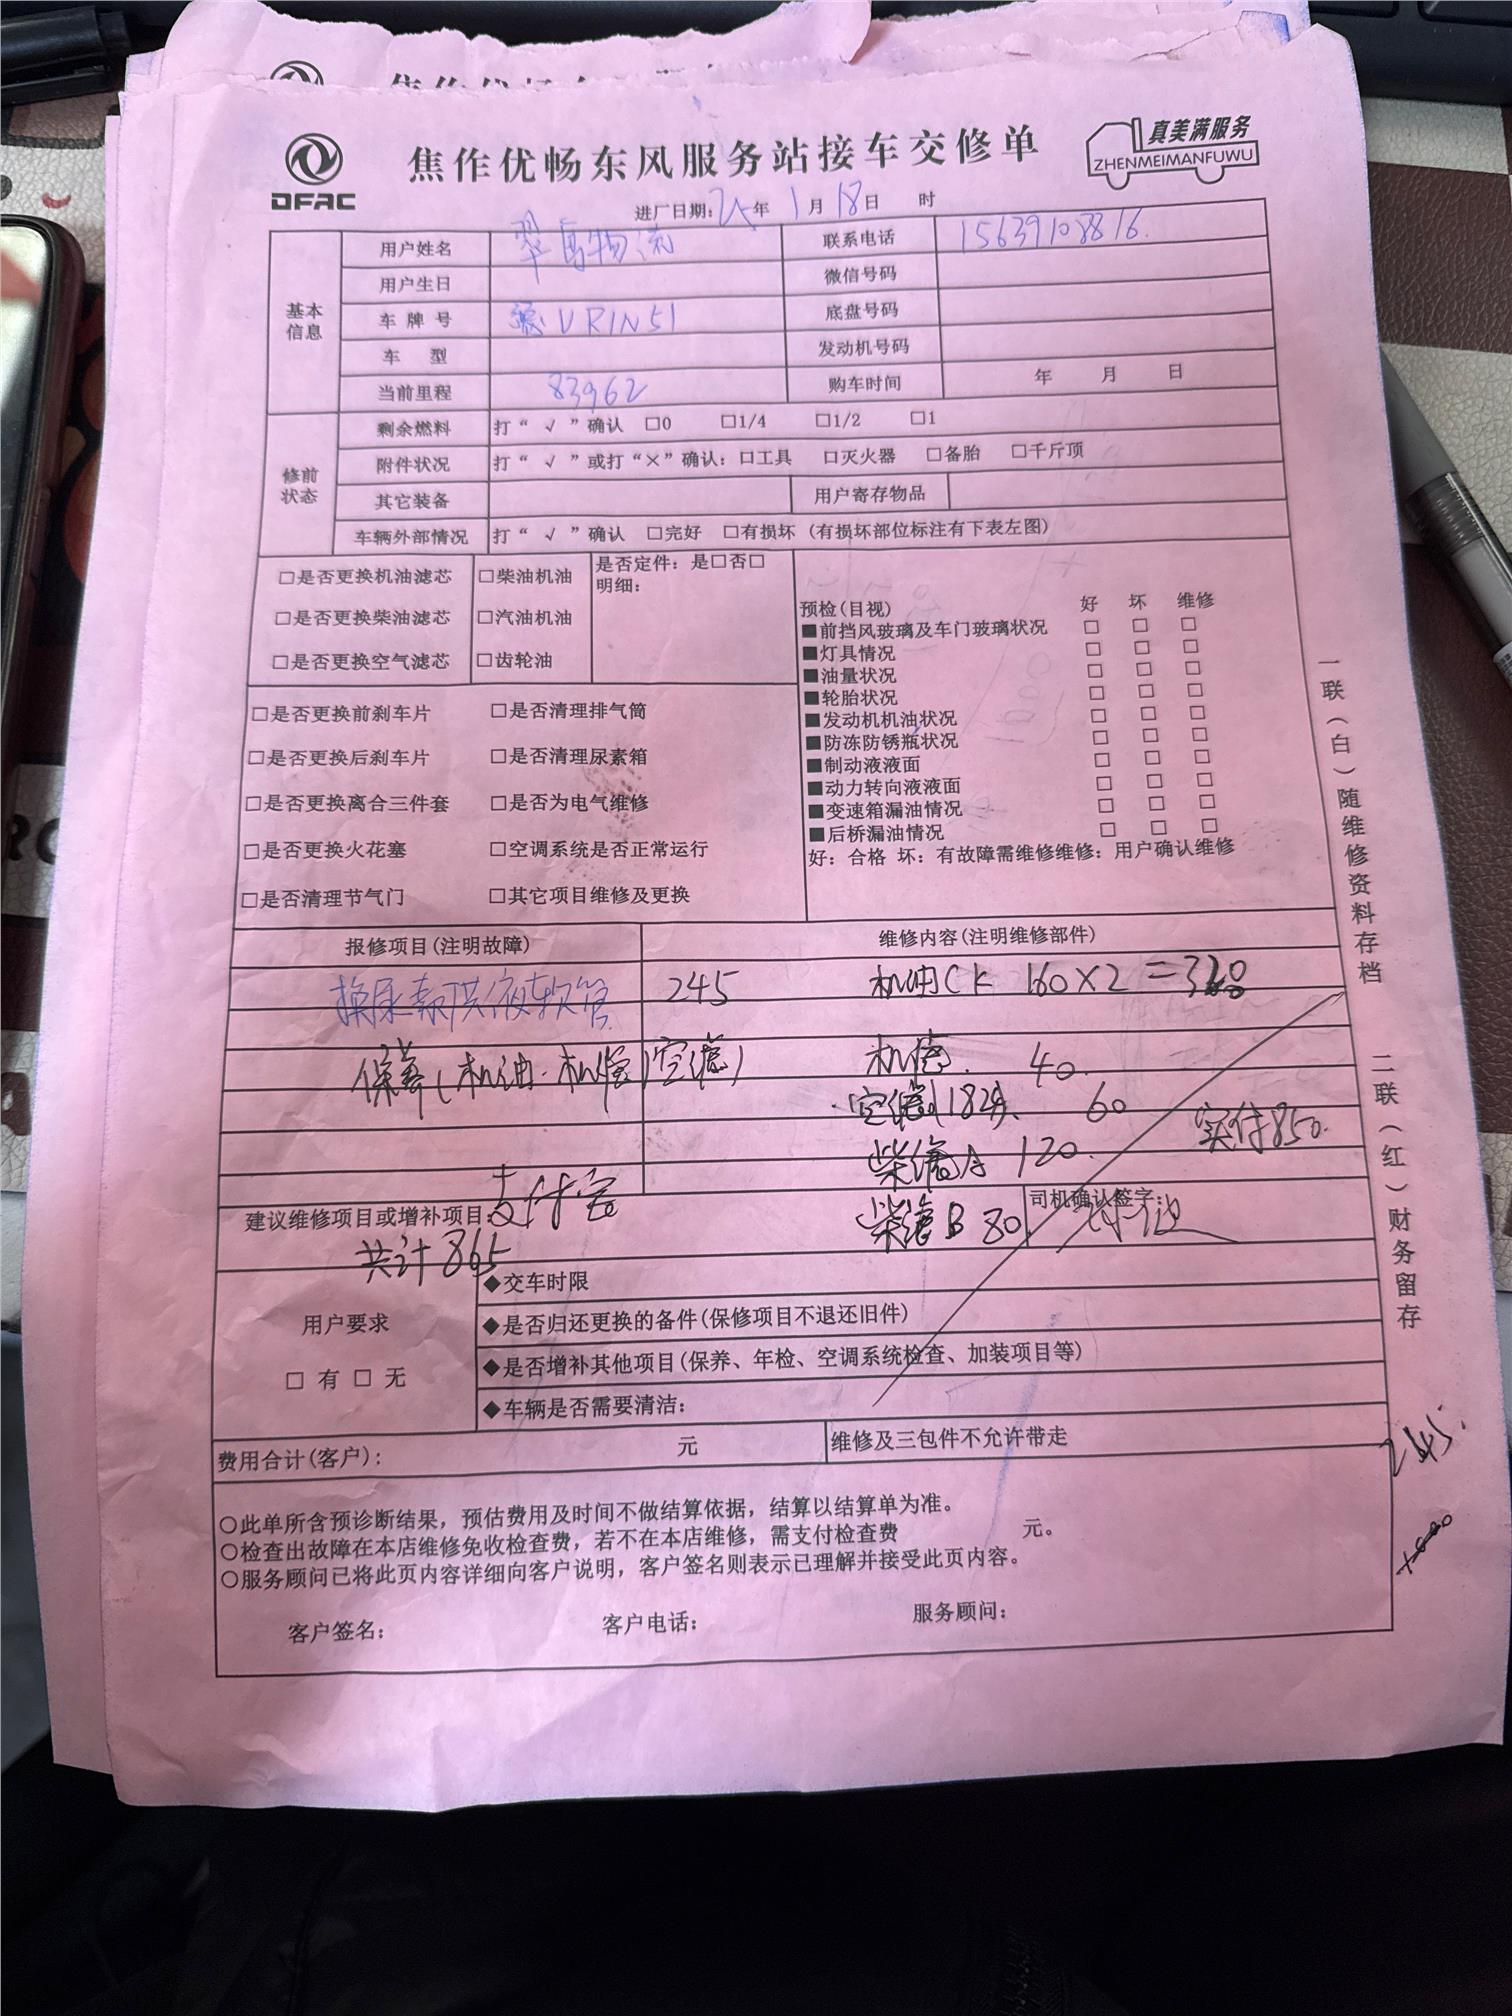 焦作优畅东风服务站接车交修单
DFAC
真美满服务
ZHENMEIMANFUWU
进厂日期: 25年 1月 18日 时
基本信息
用户姓名 物流 联系电话 15639108816.
用户生日 微信号码
车牌号 VR1N51 底盘号码
车型 发动机号码
当前里程 83962 购车时间 年 月 日
修前状态
剩余燃料 打“√”确认 □0 □1/4 □1/2 □1
附件状况 打“√”或打“×”确认: □工具 □灭火器 □备胎 □千斤顶
其它装备 用户寄存物品
车辆外部情况 打“√”确认 □完好 □有损坏 (有损坏部位标注有下表左图)
□是否更换机油滤芯 □柴油机油 是否定件: 是□否□
明细:
□是否更换柴油滤芯 □汽油机油
□是否更换空气滤芯 □齿轮油
预检(目视) 好 坏 维修
■前挡风玻璃及车门玻璃状况 □ □ □
■灯具情况 □ □ □
■油量状况 □ □ □
■轮胎状况 □ □ □
■发动机机油状况 □ □ □
■防冻防锈瓶状况 □ □ □
■制动液液面 □ □ □
■动力转向液液面 □ □ □
■变速箱漏油情况 □ □ □
■后桥漏油情况 □ □ □
好: 合格 坏: 有故障需维修维修: 用户确认维修
□是否更换前刹车片 □是否清理排气筒
□是否更换后刹车片 □是否清理尿素箱
□是否更换离合三件套 □是否为电气维修
□是否更换火花塞 □空调系统是否正常运行
□是否清理节气门 □其它项目维修及更换
报修项目(注明故障) 维修内容(注明维修部件)
换尿素供液软管 245 机油CK 160×2=320
保养(机油.机滤)空滤) 机滤. 40.
空滤 60 实付850.
柴滤A 120.
建议维修项目或增补项目: 支付宝 柴滤B 80 司机确认签字:
共计865
用户要求
□ 有 □ 无
◆交车时限
◆是否归还更换的备件(保修项目不退还旧件)
◆是否增补其他项目(保养、年检、空调系统检查、加装项目等)
◆车辆是否需要清洁:
费用合计(客户): 元 维修及三包件不允许带走
245.
○此单所含预诊断结果，预估费用及时间不做结算依据，结算以结算单为准。
○检查出故障在本店维修免收检查费，若不在本店维修，需支付检查费 元。
○服务顾问已将此页内容详细向客户说明，客户签名则表示已理解并接受此页内容。
客户签名: 客户电话: 服务顾问:
一联（白）随维修资料存档 二联（红）财务留存